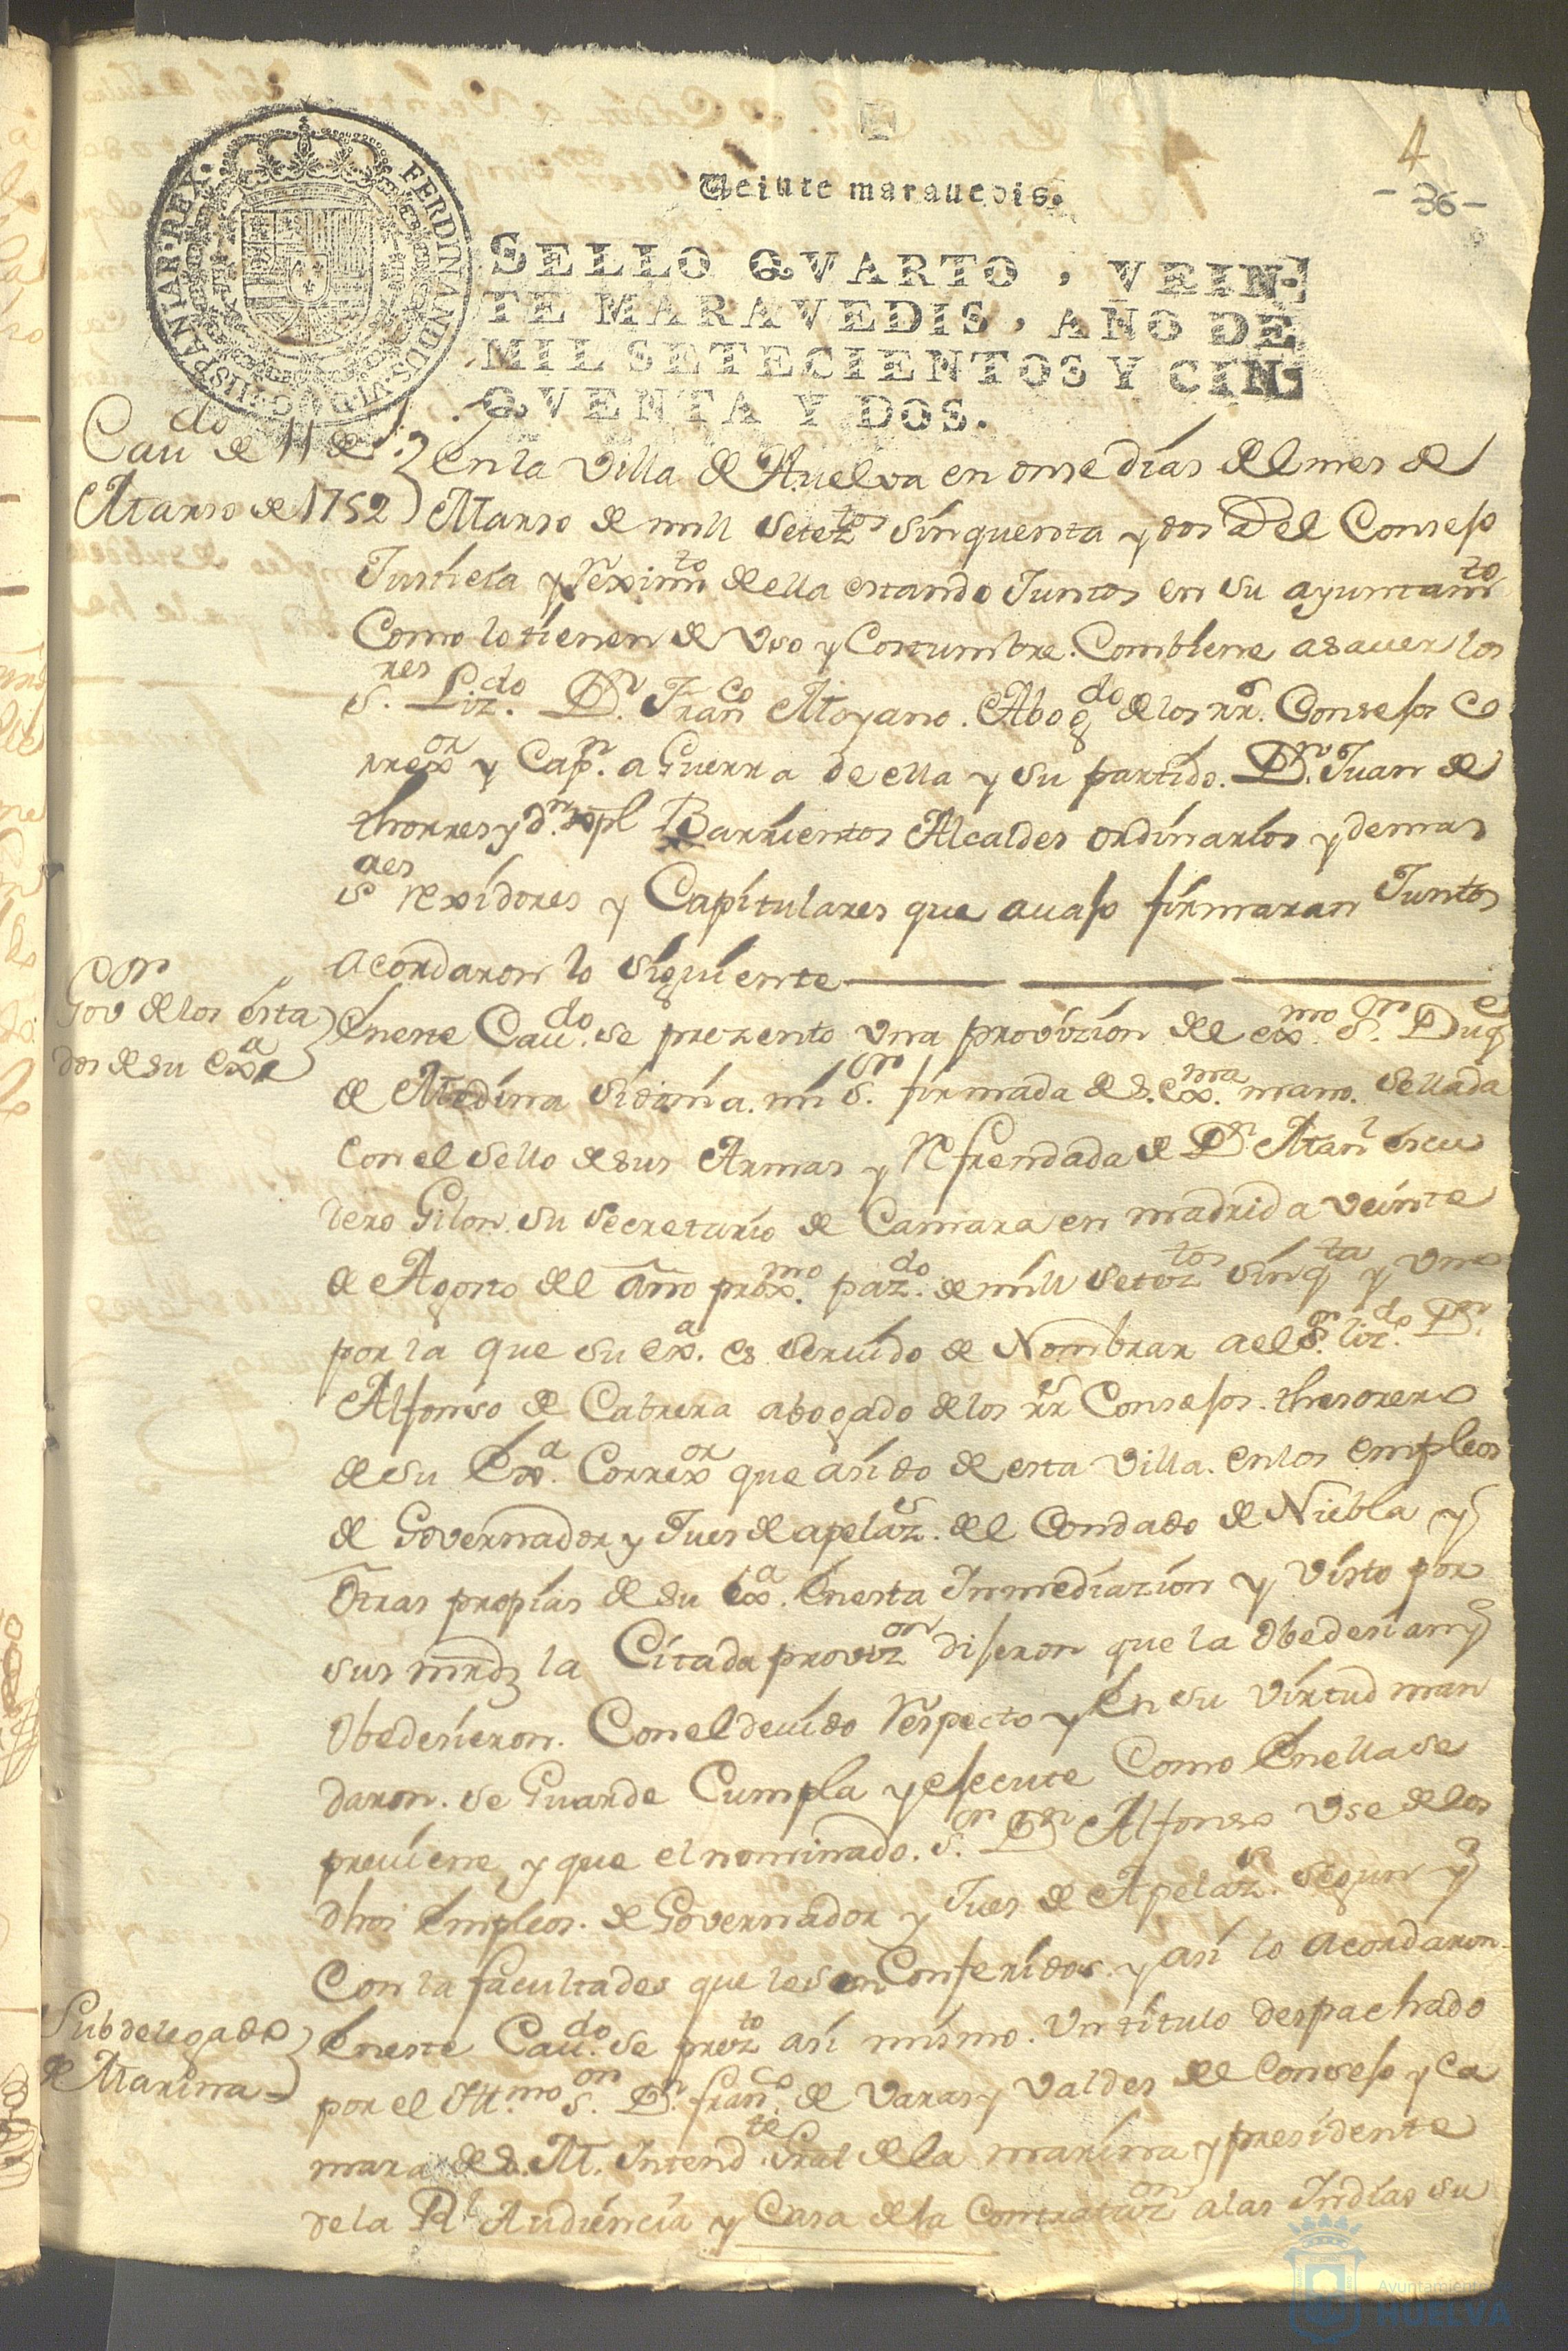 4
-36-
HISPANIAR·REX· FERDINANDUS·VI·D·G·
Veinte maravedis.
SELLO QVARTO, VEIN-
TE MARAVEDIS, AÑO DE
MIL SETECIENTOS Y CIN-
QVENTA Y DOS.
Cauᵈᵒ de 11 de
Marso de 1752
En la Villa de Huelva en onse días del mes de
Marso de mill Setezᵗᵒˢ sinquenta y dos a. el Consejo
Justicia y Reximᵗᵒ de ella estando Juntos en su ayuntamᵗᵒ
Como lo tienen de Vso y Costumbre. Combiene asauer los
Sʳᵉˢ. Lizᵈᵒ. Dⁿ. Franᶜᵒ Moyano. Abogᵈᵒ de los rrˢ. Consejos Co
rrexᵒʳ y Capⁿ. a Guerra de ella y su partido. Dⁿ. Juan de
thorres y dⁿ. Xpl Barrientos Alcaldes ordinarios y demas
Sʳᵉˢ rexidores y Capitulares que auajo firmaran Juntos
acordaron lo siguiente
Gov ᵒʳ de los esta
dos de su exᵃ
Eneste Cauᵈᵒ. se prezento vna provizion del exᵐᵒ. Sᵒʳ. Duqᵉ
de Medina Sidonia. mi Sᵒʳ. firmada de s. exᵐᵃ. mano. Sellada
Con el Sello de sus Armas y Refrendada de Dⁿ. Manˡ escu
dero Gilon. su secretario de Camara en madrid a veinte
de Agosto del año proxᵐᵒ. pazᵈᵒ. de mill Setezᵗᵒˢ sinqᵗᵃ y vno
por la que su exᵃ. es seruido de Nombrar a el Sᵒʳ. lizᵈᵒ. Dⁿ.
Alfonso de Cabrera abogado de los rrˢ Consejos. thesorero
de su Exᵃ. Correxᵒʳ que asido de esta Villa. en los empleos
de Governador y Jues de apelazˢ. del Condado de Niebla y
otras propias de su Exᵃ. Enesta Inmediazion y visto por
sus mrdz la Citada provizᵒⁿ dijeron que la obedesian y
obedesieron. Con el deuido Respecto y En su virtud man
daron. se Guarde Cumpla y ejecute Como Enella se
preuiene y que el nominado. Sᵒʳ. Dⁿ Alfonso vse de los
dhos Empleos. de Governador y Jues de Apelazˢ. segun y
Con la facultades que le son Conferidas. y asi lo acordaron.
Subdelegado
de Marina
Eneste Cauᵈᵒ. se prezᵗᵒ asi mismo. Vn titulo despachado
por el Iltᵐᵒ Sᵒʳ. Dⁿ. franᶜᵒ. de Varas y Valdes del Consejo y Ca
mara de s. M. Intendᵗᵉ. Gral de la marina y presidente
de la Rˡ Audiencia y Casa de la Contratazᵒⁿ a las Indias su
Ayuntamiento de
HUELVA